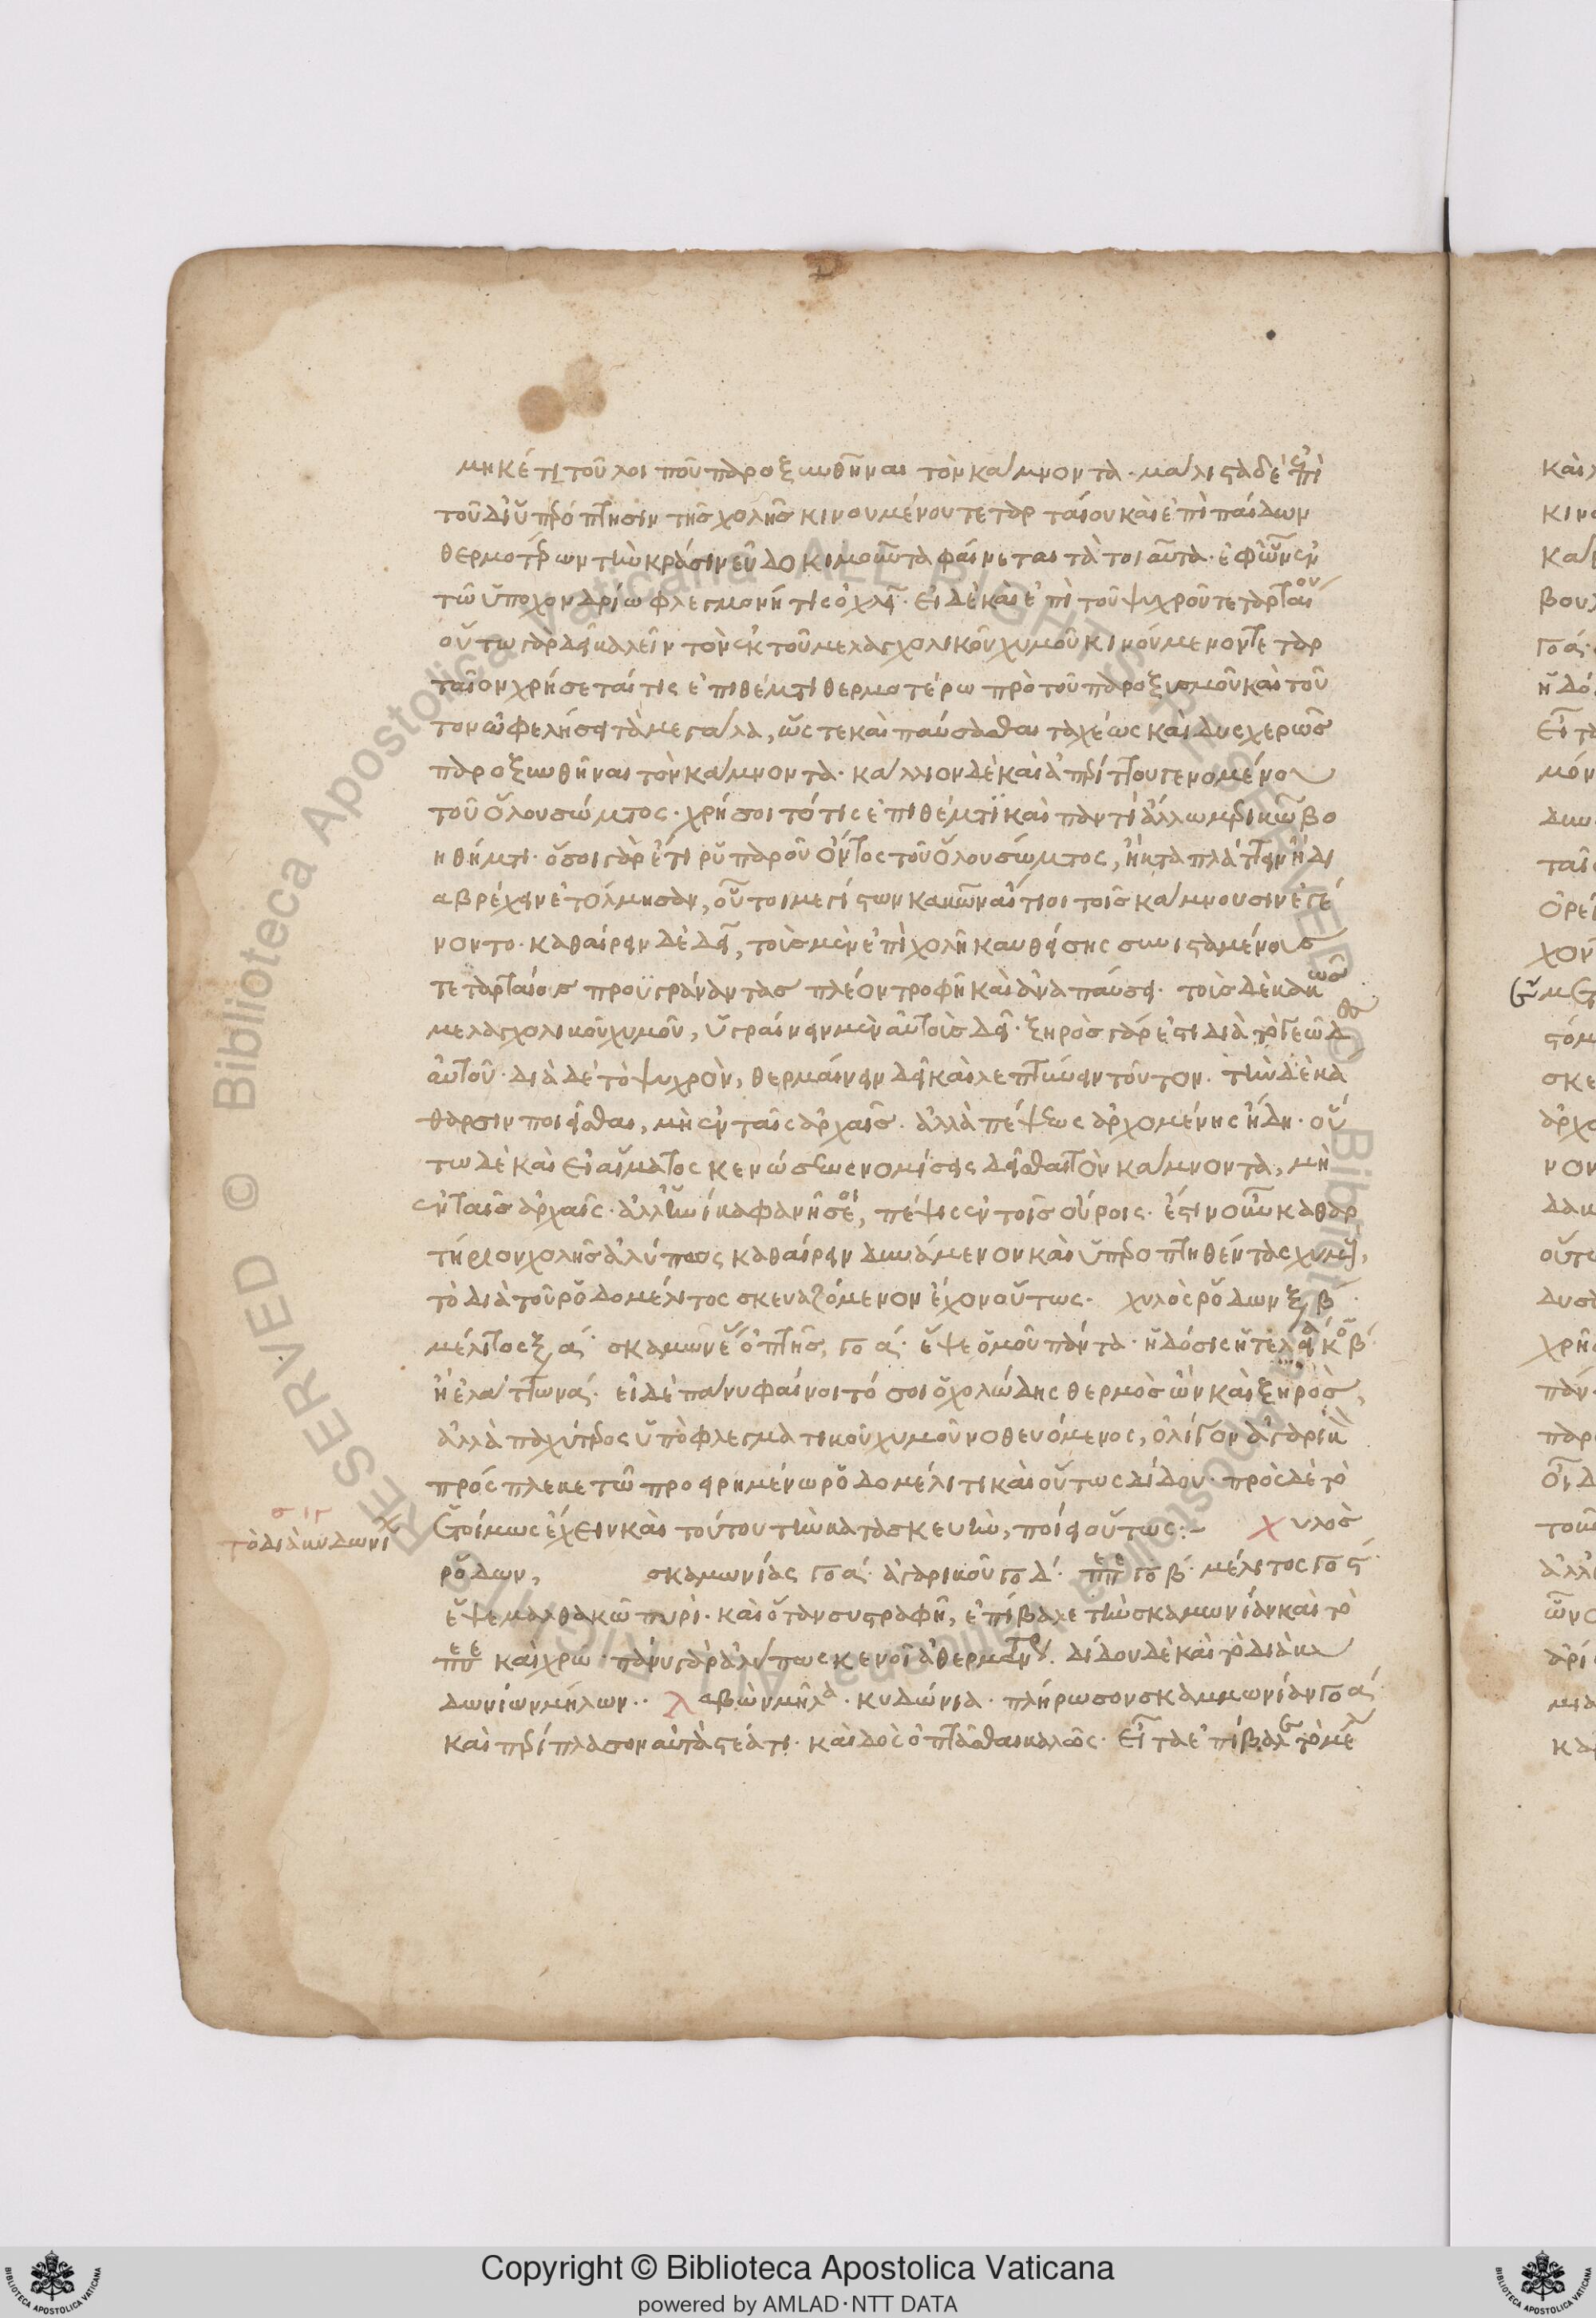 μηκέτι τοῦ λοιποῦ παροξυνθῆναι τὸν κάμνοντα· μάλιστα δὲ ἐπὶ
τοῦ δι' ὑπερόπτησιν τῆς χολῆς κινουμένου τεταρταίου καὶ ἐπὶ παίδων
θερμοτέρων τὴν κρᾶσιν εὐδοκιμοῦντα φαίνεται τὰ τοιαῦτα· ἐφ' ὧν ἐν
τῷ ὑποχονδρίῳ φλεγμονή τις ὀχλεῖ· εἰ δὲ καὶ ἐπὶ τοῦ ψυχροῦ τεταρταίου
οὕτω γὰρ δεῖ καλεῖν τὸν ἐκ τοῦ μελαγχολικοῦ χυμοῦ κινούμενον τεταρ
ταῖον χρήσεταί τις ἐπιθέματι θερμοτέρω πρὸ τοῦ παροξυσμοῦ καὶ τοῦ
τον ὠφελήσει τὰ μεγάλα, ὥστε καὶ παύσασθαι ταχέως καὶ δυσχερῶς
παροξυνθῆναι τὸν κάμνοντα· κάλλιον δὲ καὶ ἀπερίττου γενομένου
τοῦ ὅλου σώματος· χρήσοιτό τις ἐπιθέματι καὶ παντὶ ἄλλω μερικῶ βο
ηθήματι· ὅσοι γὰρ ἔτι ῥυπαροῦ ὄντος τοῦ ὅλου σώματος, ἢ καταπλάττειν ἢ δι
αβρέχειν ἐτόλμησαν, οὗτοι μεγίστων κακῶν αἴτιοι τοῖς κάμνουσιν ἐγέ
νοντο· καθαίρειν δὲ δεῖ, τοῖς μὲν ἐπὶ χολῆ καυθείσης συνισταμένοις
τεταρταίοις προϋγράναντας πλέον τροφῆ καὶ ἀναπαύσει· τοῖς δὲ κακῶς
μελαγχολικοῦ χυμοῦ, ὑγραίνειν μὲν αὐτοῖς δεῖ· ξηρὸς γάρ ἐστι διὰ τὸ γεῶδες
αὐτοῦ· διὰ δὲ τὸ ψυχρὸν, θερμαίνειν δεῖ καὶ λεπτύνειν τοῦτον. τὴν δὲ κά
θαρσιν ποιεῖσθαι, μὴ ἐν ταῖς ἀρχαῖς· ἀλλὰ πέψεως ἀρχομένης ἤδη· οὕ
τω δὲ καὶ εἰ αἵματος κενώσεως νομίσεις δεῖσθαι τὸν κάμνοντα, μὴ
ἐν ταῖς ἀρχαῖς· ἀλλ' ἡνίκα φανῆ σοι, πέψις ἐν τοῖς οὔροις· ἔστιν οὖν καθαρ
τήριον χολῆς ἀλύπως καθαίρειν δυνάμενον καὶ ὑπεροπτηθέντας χυμούς,
τὸ διὰ τοῦ ῥοδομέλιτος σκευαζόμενον ἔχον οὕτως· χυλὸς ῥόδων ξ β
μέλιτος ξ α· σκαμωνίας ὀπτῆς, γο α· ἕψε ὁμοῦ πάντα· ἡ δόσις ἡ τελεία κο β
ἢ ἐλάττων α· εἰ δὲ πάνυ φαίνοιτό σοι ὁ χολώδης θερμὸς ὢν καὶ ξηρὸς,
ἀλλὰ παχύτερος ὑπὸ φλεγματικοῦ χυμοῦ νοθευόμενος, ὀλίγον ἀγαρικοῦ
πρόσπλεκε τῶ προειρημένω ῥοδομέλιτι καὶ οὕτως δίδου· πρὸς δὲ τὸ
ἑτοίμως ἔχειν καὶ τούτου τὴν κατασκευὴν, ποίει οὕτως:– χυλὸς
σιγ
τὸ διὰ κυδωνίων
ῥόδων, σκαμωνίας γο α· ἀγαρικοῦ γο δ· πεπε γο β· μέλιτος γο ς
ἕψε μαλθακῶ πυρὶ· καὶ ὅταν συστραφῆ, ἐπίβαλε τὴν σκαμωνίαν καὶ τὸ
πεπε καὶ χρῶ· πάνυ γὰρ ἀλύπως κενοῖ ἀθερμάντως. δίδου δὲ καὶ τὸ διὰ κυ
δωνίων μήλων·· λαβὼν μῆλα· κυδώνια· πλήρωσον σκαμμωνίαν γο α
καὶ περίπλασον αὐτὰ στέατι· καὶ δὸς ὀπτᾶσθαι καλῶς· εἶτα ἐπίβαλε τὸ μέλι
Copyright © Biblioteca Apostolica Vaticana
powered by AMLAD·NTT DATA